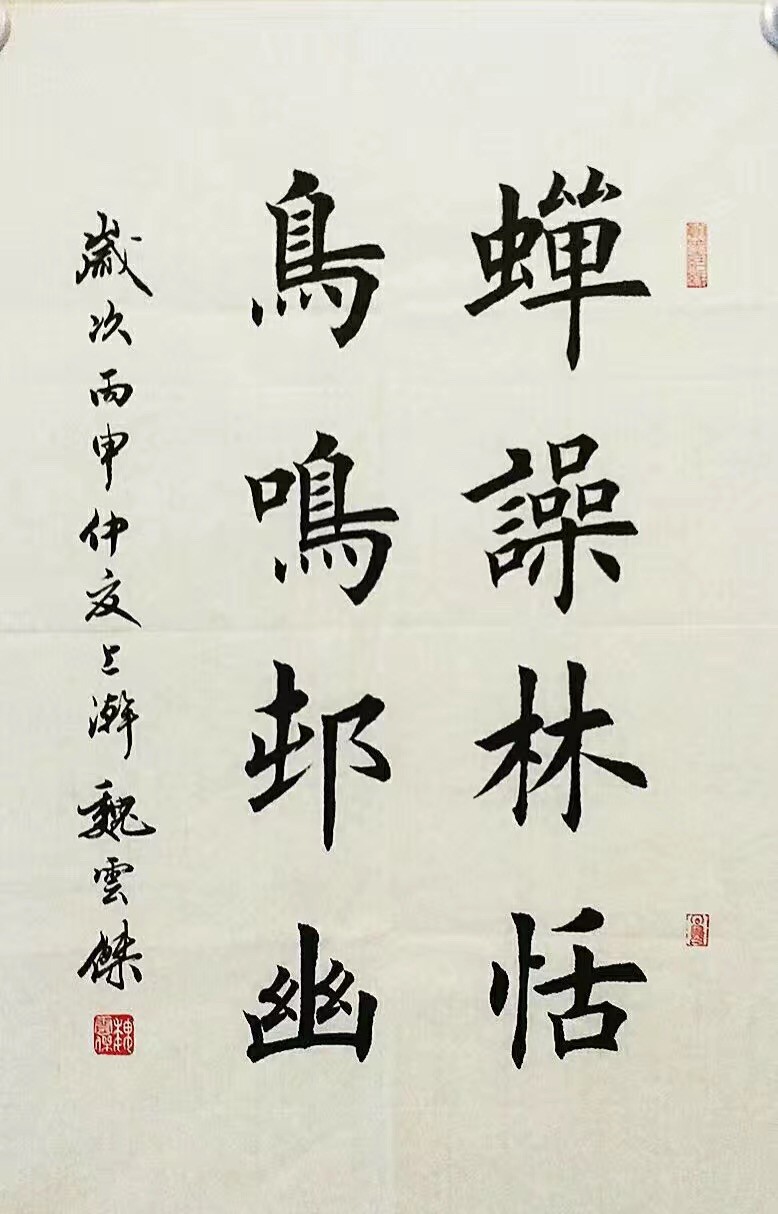 蟬譟林恬
鳥鳴邨幽
歲次丙申仲夏上澣魏雲傑